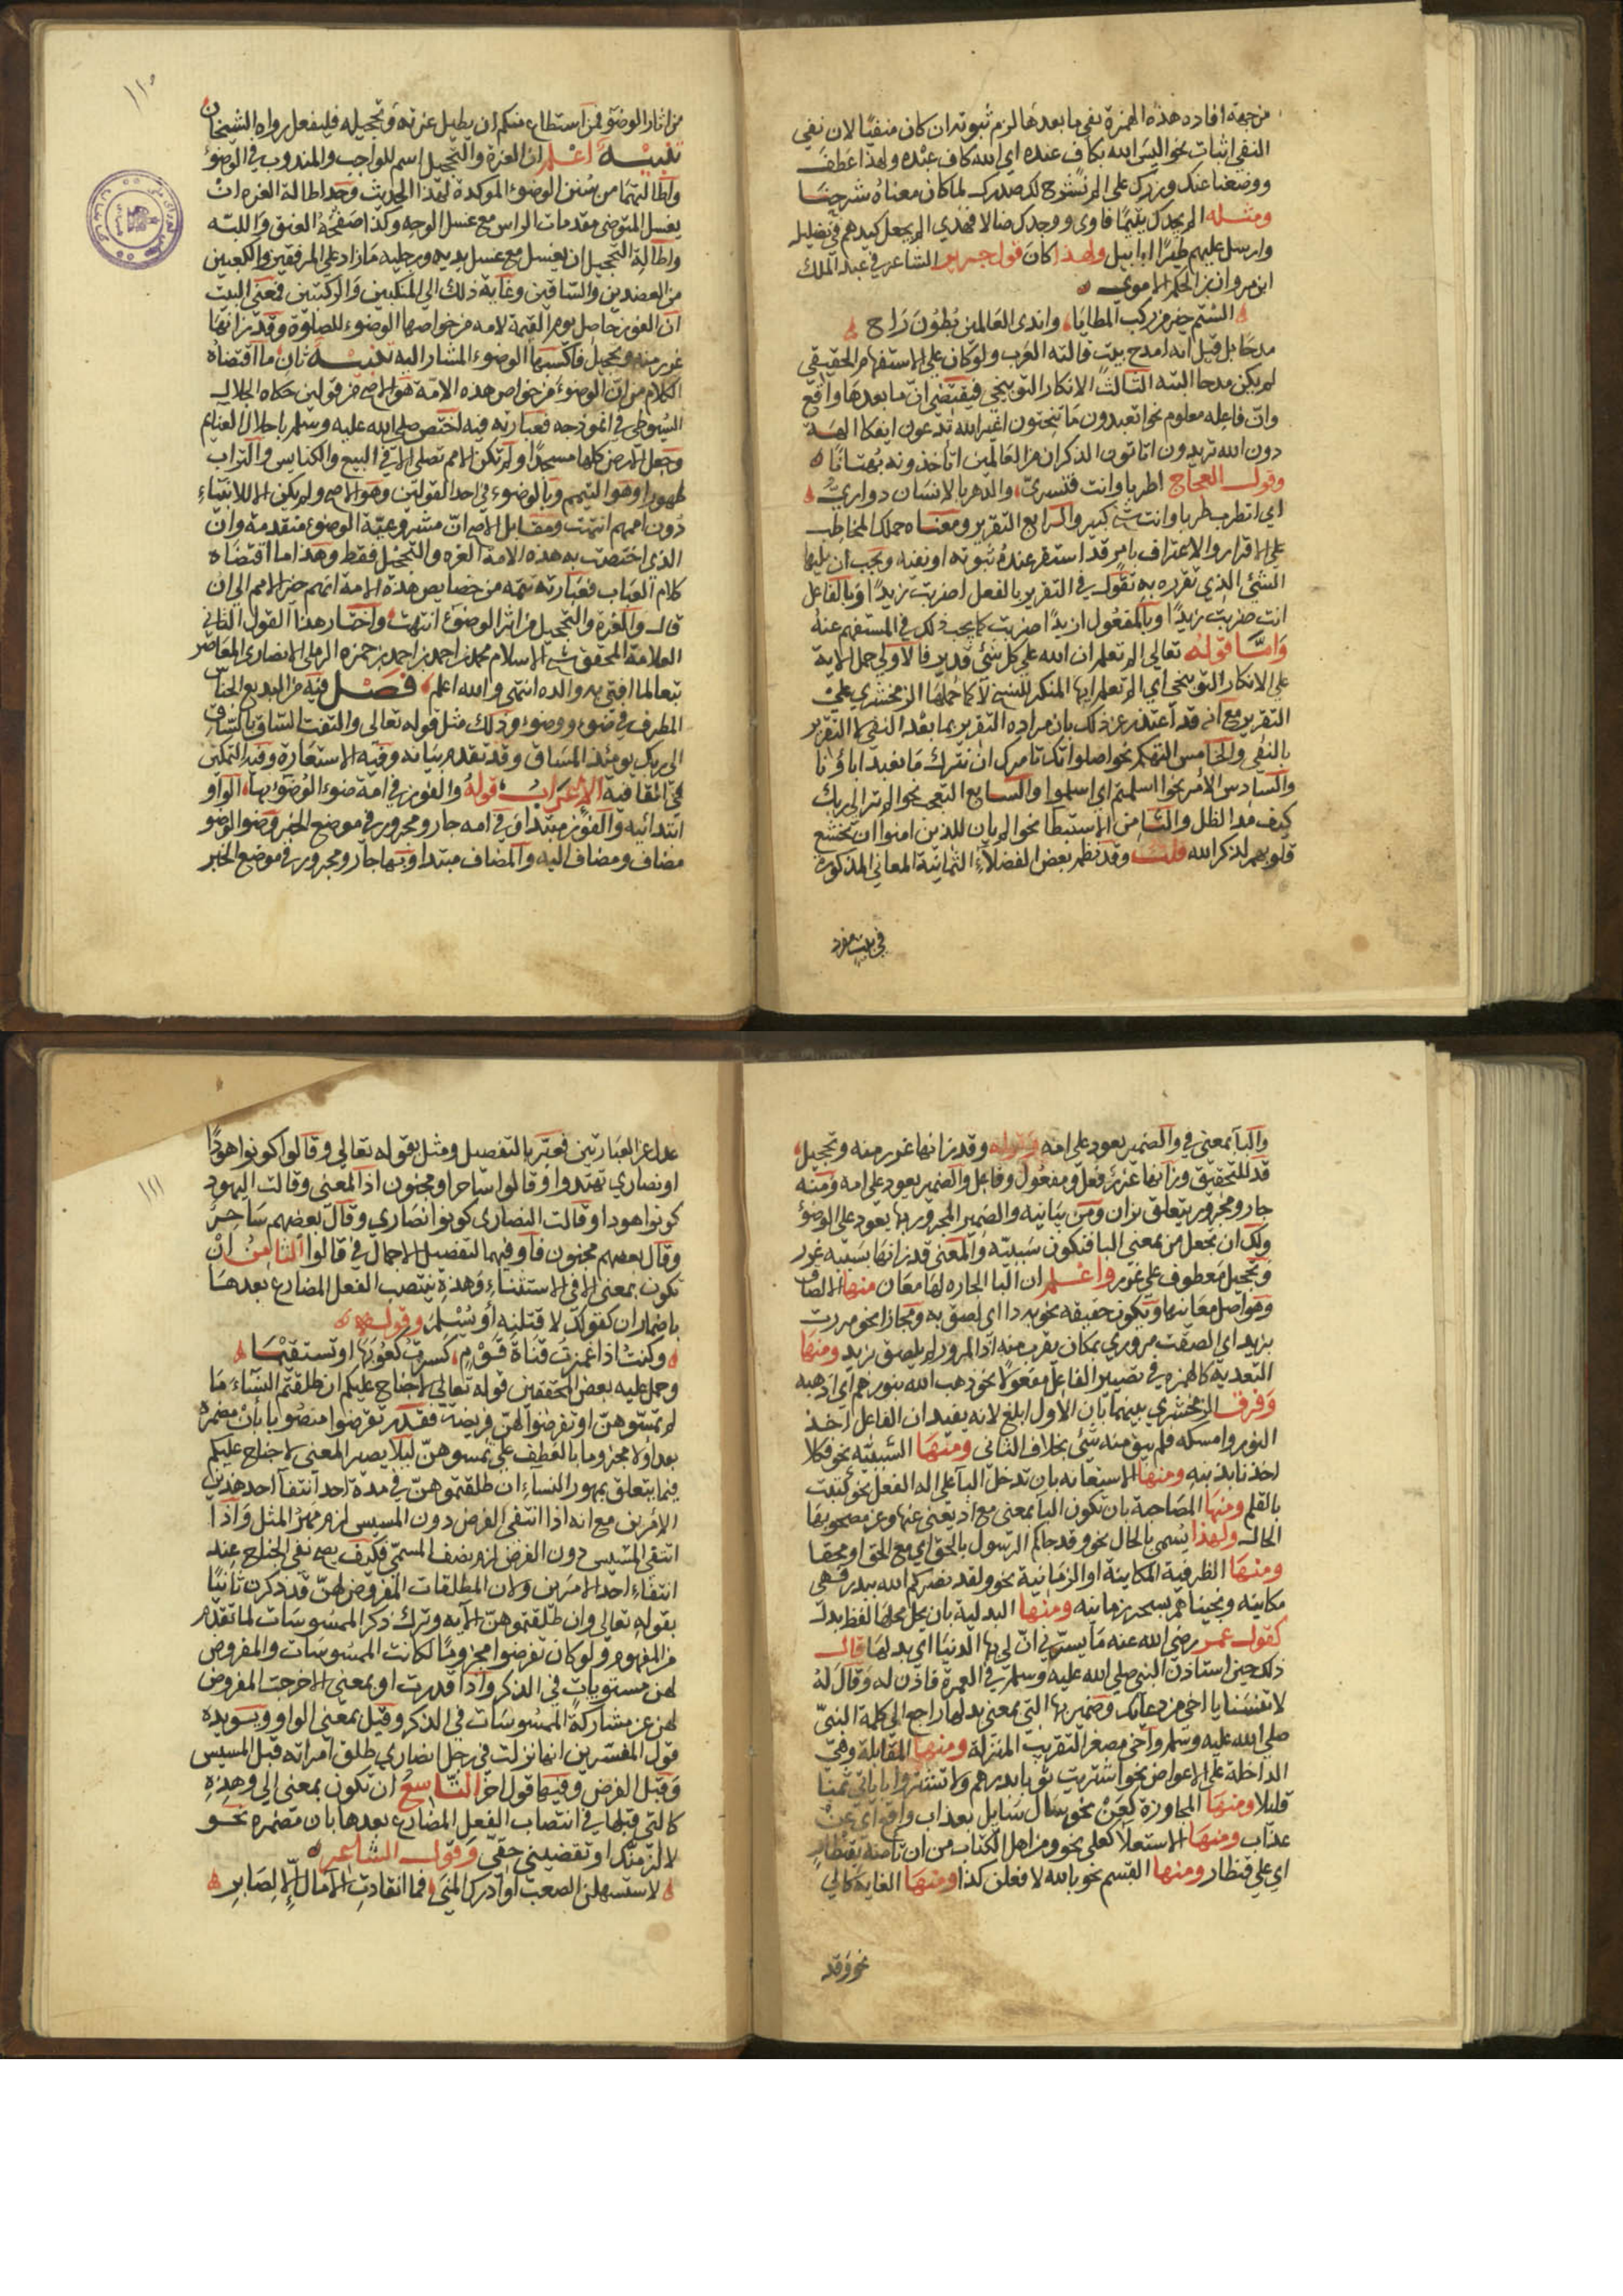 من جهة افاده هذه الهمزة نفي ما بعدها لزم ثبوته ان كان منفيا لان نفي
النفي اثبات نحو اليس الله بكاف عنده اي الله كاف عبده ولهذا عطف
ووضعنا عنك وزرك على الم نشرح لك صدرك لما كان معناه شرحنا
ومثله الم يجدك يتيما فاوى ووجدك ضالا فهدي الم يجعل كيدهم في تضليل
وارسل عليهم طيرا ابابيل ولهذا كان قول جرير الشاعر في عبد الملك
ابن مروان بن الحكم الاموي
الستم خير من ركب المطايا واندى العالمين بطون راح
مدحا بل قيل انه امدح بيت قالته العرب ولو كان على الاستفهام الحقيقي
لم يكن مدحا البته الثالث الانكار التوبيخي فيقتضي ان ما بعدها واقع
وان فاعله معلوم نحو اتعبدون ما تنحتون اغير الله تدعون ايفكا الهة
دون الله تريدون اتاتون الذكران من العالمين اتاخذونه بهتانا
وقول العجاج اطربا وانت قنسري والدهر بالانسان دواري
اي اتطرب طربا وانت شيخ كبير والرابع التقرير ومعناه حملك المخاطب
على الاقرار والاعتراف بامر قد استقر عنده ثبوته او نفيه ويجب ان يليها
الشئ الذي تقرره به تقول في التقرير بالفعل اضربت زيدا وبالفاعل
انت ضربت زيدا وبالمفعول ازيدا ضربت كما يجب ذلك في المستفهم عنه
واما قوله تعالي الم تعلم ان الله على كل شئ قدير فالاولي حمل الاية
على الانكار التوبيخي اي الم تعلم ايها المنكر للنسخ لا كما حملها الزمخشري على
التقرير مع انه قد اعتذر عن ذلك بان مراده التقرير بما بعد النفي لا التقرير
بالنفي والخامس التهكم نحو اصلواتك تامرك ان نترك ما يعبد اباؤنا
والسادس الامر نحو اسلمتم اي اسلموا والسابع التعجب نحو الم تر الي ربك
كيف مد الظل والثامن الاستبطا نحو الم يان للذين امنوا ان تخشع
قلوبهم لذكر الله قلت وقد نظم بعض الفضلاء الثمانية المعاني المذكورة
في بيت مفرد
١١٠
من اثار الوضوء فمن استطاع منكم ان يطيل غرته وتحجيله فليفعل رواه الشيخان
تنبيه اعلم ان الغرة والتحجيل اسم للواجب والمندوب في الوضوء
واطالتهما من سنن الوضوء الموكدة لهذا الحديث وحد اطالة الغرة ان
يغسل المتوضى مقدمات الراس مع غسل الوجه وكذا صفحة العنق واللبه
واطالة التحجيل ان يغسل مع غسل يديه ورجليه ما زاد على المرفقين والكعبين
من العضدين والساقين وغاية ذلك الي المنكبين والركبتين فمعنى البيت
ان الفوز حاصل يوم القيمة لامه من خواصها الوضوء للصلوة وقد زانها
غرر منه وتحجيل فاكسبها الوضوء المشار اليه تنبيه ثان ما اقتضاه
الكلام من ان الوضوء من خواص هذه الامة هو الاصح من قولين حكاه الجلال
السيوطي في انموذجه فعبارته فيه اختص صلى الله عليه وسلم باحلال الغنايم
وجعل الارض كلها مسجدا ولم تكن الامم تصلى الا في البيع والكنايس والتراب
طهورا وهو التيمم وبالوضوء في احد القولين وهو الاصح ولم يكن الا للانبياء
دون اممهم انتهت ومقابل الاصح ان مشروعية الوضوء متقدمة وان
الذى اختصت به هذه الامة الغره والتحجيل فقط وهذا ما اقتضاه
كلام العباب فعبارته تتمه من خصايص هذه الامة انهم خير الامم الى ان
قال والغرة والتحجيل من اثر الوضوء انتهت واختار هذا القول الثاني
العلامة المحقق شيخ الاسلام محمد بن احمد بن احمد بن حمزه الرملى الانصارى المعاصر
تبعا لما افتى به والده انتهى والله اعلم فصل فيه من البديع الجناس
المطرف في ضوء ووضوء وذلك مثل قوله تعالى والتفت الساق بالساق
الى ربك يومئذ المساق وقد تقدم بيانه وفيه الاستعارة وفيه التمكن
في القافية الاعراب قوله والفوز في امة ضوء الوضوء بها الواو
ابتدائيه والفوز مبتدا وفي امه جار ومجرور في موضع الخبر وضوء الوضو
مضاف ومضاف اليه والمضاف مبتدا وبها جار ومجرور في موضع الخبر
والبا بمعنى في والضمير يعود على امه وقوله وقد زانها غرر منه وتحجيل
قد للتحقيق وزانها غرر فعل ومفعول وفاعل والضمير يعود على امه ومنه
جار ومجرور يتعلق بزان ومن بيانيه والضمير المجرور بها يعود على الوضؤ
ولك ان تجعل من بمعنى البا فتكون سببيه والمعنى قد زانها بسببه غرر
وتحجيل معطوف على غرر واعلم ان البا الجاره لها معان منها الالصاق
وهو اصل معانيها ويكون حقيقه نحو به دا اي لصق به ومجازا نحو مررت
بزيد اي الصقت مروري بمكان يقرب منه اذ المرور لم يلصق بزيد ومنها
التعدية كالهمزه في تصيير الفاعل مفعولا نحو ذهب الله بنورهم اي اذهبه
وفرق الزمخشري بينهما بان الاول ابلغ لانه يفيد ان الفاعل اخذ
النور وامسكه فلم يبق منه شئ بخلاف الثانى ومنها السببيه نحو فكلا
اخذنا بذنبه ومنها الاستعانه بان تدخل البا على اله الفعل نحو كتبت
بالقلم ومنها المصاحبة بان تكون البا بمعنى مع اذ يغنى عنها وعن مصحوبها
الحال ولهذا يسمى بالحال نحو وقد جاكم الرسول بالحق اي مع الحق او محقا
ومنها الظرفية المكانية او الزمانية نحو ولقد نصركم الله ببدر فهى
مكانيه ونجيناهم بسحر زمانيه ومنها البدلية بان يحل محلها لفظ بدل
كقول عمر رضى الله عنه ما يسرني ان لي بها الدنيا اي بدلها قال
ذلك حين استاذن النبي صلى الله عليه وسلم في العمرة فاذن له وقال له
لا تنسنا يا اخي من دعائك وضمير بها التي بمعنى بدلها راجع الى كلمة النبي
صلى الله عليه وسلم واخي مصغر لتقريب المنزلة ومنها المقابلة وهي
الداخلة على الاعواض نحو اشتريت ثوبا بدرهم ولا تشتروا باياتي ثمنا
قليلا ومنها المجاوزة كعن نحو سال سايل بعذاب واقع اي عن
عذاب ومنها الاستعلا كعلى نحو ومن اهل الكتاب من ان تامنه بقنطار
اي على قنطار ومنها القسم نحو بالله لافعلن كذا ومنها الغاية كالي
نحو وقد
١١١
عدا عن العبارتين فعبر بالتفصيل ومثل بقوله تعالي وقالوا كونوا هودا
او نصاري تهتدوا وقالوا ساحر او مجنون اذ المعنى وقالت اليهود
كونوا هودا وقالت النصارى كونوا نصارى وقال بعضهم ساحر
وقال بعضهم مجنون فاو فيهما لتفصيل الاجمال في قالوا الثامن ان
تكون بمعنى الا في الاستثناء وهذه ينتصب الفعل المضارع بعدها
باضمار ان كقولك لاقتلنه او يسلم وقوله
وكنت اذا غمزت قناة قوم كسرت كعوبها او تستقيما
وحمل عليه بعض المحققين قوله تعالي لا جناح عليكم ان طلقتم النساء ما
لم تمسوهن او تفرضوا لهن فريضه فقدر تفرضوا منصوبا بان مضمرة
بعد او لا مجزوما بالعطف على تمسوهن ليلا يصير المعنى لا جناح عليكم
فيما يتعلق بمهور النساء ان طلقتموهن في مدة احد انتفا احد هذين
الامرين مع انه اذا انتفى الفرض دون المسيس لزم مهر المثل واذا
انتفى المسيس دون الفرض لزم نصف المسمى فكيف يصح نفي الجناح عند
انتفاء احد الامرين ولان المطلقات المفروض لهن قد ذكرن ثانيا
بقوله تعالي وان طلقتموهن الايه وترك ذكر الممسوسات لما تقدم
من المفهوم ولو كان تفرضوا مجزوما لكانت الممسوسات والمفروض
لهن مستويات في الذكر واذا قدرت او بمعنى الا خرجت المفروض
لهن عن مشاركة الممسوسات في الذكر وقيل بمعنى الواو ويؤيده
قول المفسرين انها نزلت في رجل انصاري طلق امراته قبل المسيس
وقبل الفرض وفيها قول اخر التاسع ان تكون بمعنى الى وهذه
كالتى قبلها في انتصاب الفعل المضارع بعدها بان مضمره نحو
لالزمنك او تقضينى حقي وقول الشاعر
لاستسهلن الصعب او ادرك المنى فما انقادت الامال الا لصابر